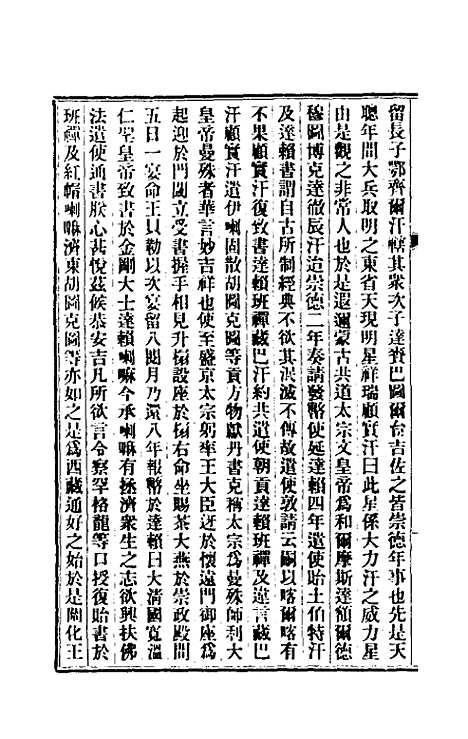 留長子鄂齊爾汗轄其衆次子達賚巴圖爾台吉佐之皆崇德年事也先是天
聰年間大兵取明之東省天現明星祥瑞顧實汗曰此星係大力汗之威力星
由是觀之非常人也於是遐邇蒙古共道太宗文皇帝爲和爾摩斯達額爾德
穆圖博克達徹辰汗迨崇德二年奏請發幣使延達賴四年遣使貽土伯特汗
及達賴書謂自古所制經典不欲其泯滅不傳故遣使敦請云嗣以喀爾喀有
不果顧實汗復致書達賴班禪藏巴汗約共遣使朝貢達賴班禪及藏巴
汗顧實汗遣伊喇固散胡圖克圖等貢方物獻丹書克稱太宗爲曼殊師利大
皇帝曼殊者華言妙吉祥也使至盛京太宗躬率王大臣迓於懷遠門御座爲
起迎於門閾立受書握手相見升榻設座於榻右命坐賜茶大燕於崇政殿間
五日一宴命王貝勒以次宴留八閱月乃還八年報幣於達賴曰大清國寬溫
仁聖皇帝致書於金剛大士達賴喇嘛今承喇嘛有拯濟衆生之志欲興扶佛
法遣使通書朕心甚悅茲候恭安吉凡所欲言令察罕格龍等口授復貽書於
班禪及紅帽喇嘛濟東胡圖克圖等亦如之是爲西藏通好之始於是闡化王